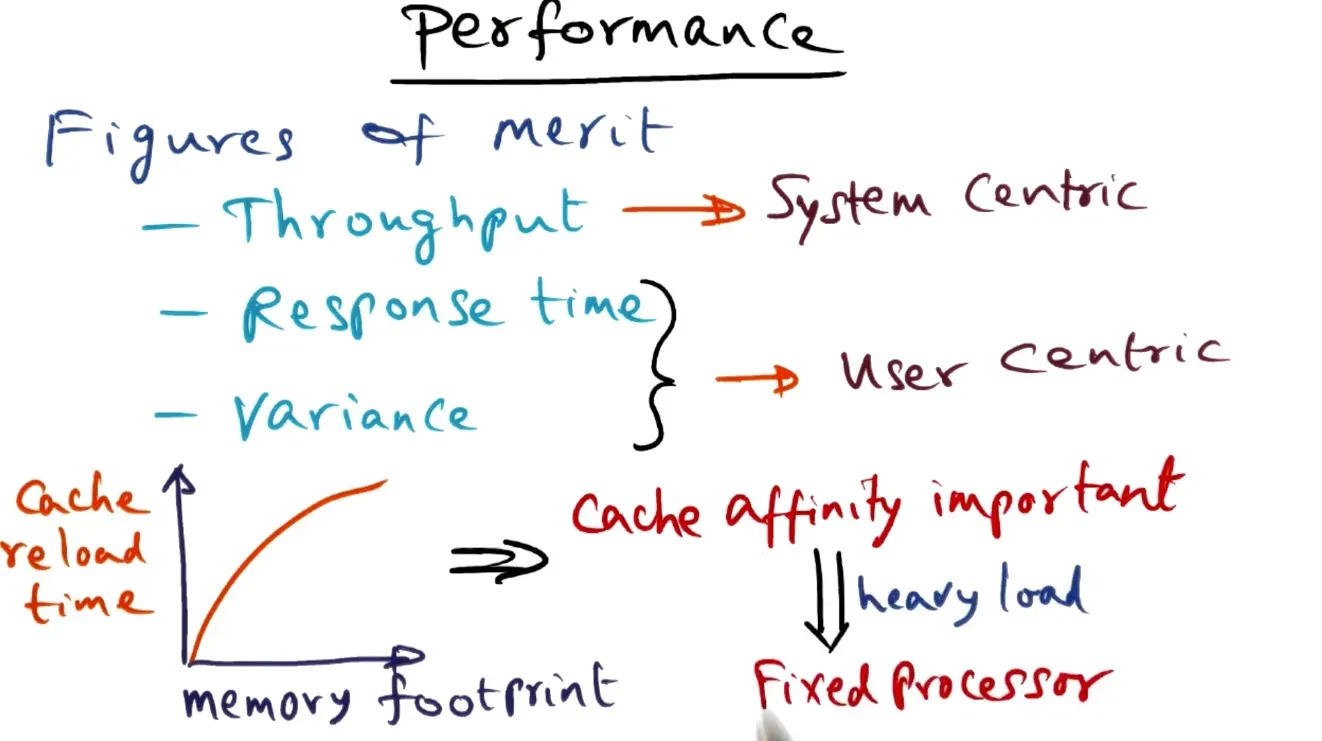 Performance
Figures of merit
– Throughput → System Centric
– Response time
– Variance
→ User Centric
Cache
reload
time
memory footprint
⇒ Cache affinity important
heavy load
Fixed Processor